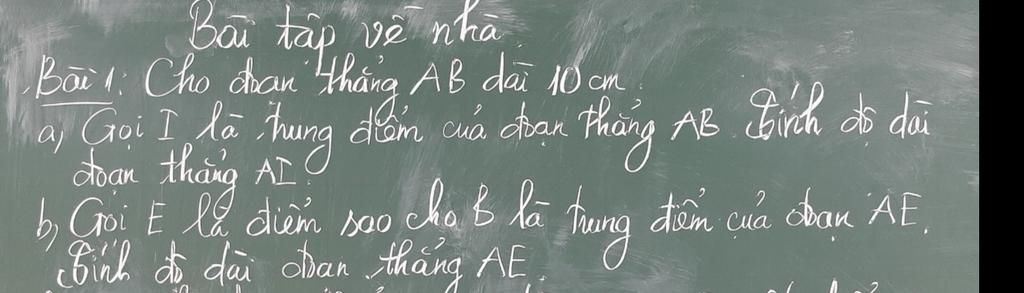 Bài tập về nhà.
Bài 1: Cho đoạn thẳng AB dài 10 cm.
a) Gọi I là trung điểm của đoạn thẳng AB. Tính độ dài
đoạn thẳng AI.
b) Gọi E là điểm sao cho B là trung điểm của đoạn AE.
Tính độ dài đoạn thẳng AE.